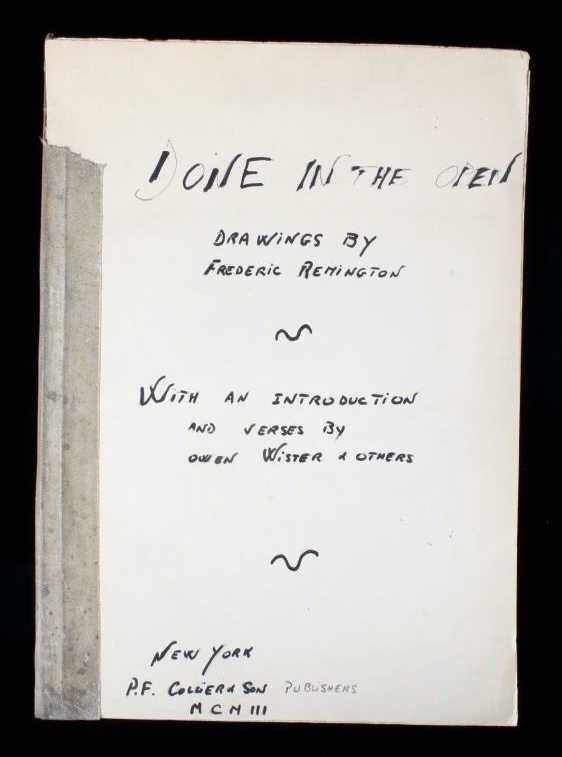 DONE IN THE OPEN
DRAWINGS BY
FREDERIC REMINGTON
WITH AN INTRODUCTION
AND VERSES BY
OWEN WISTER & OTHERS
NEW YORK
P.F. COLLIER & SON PUBLISHERS
MCMIII